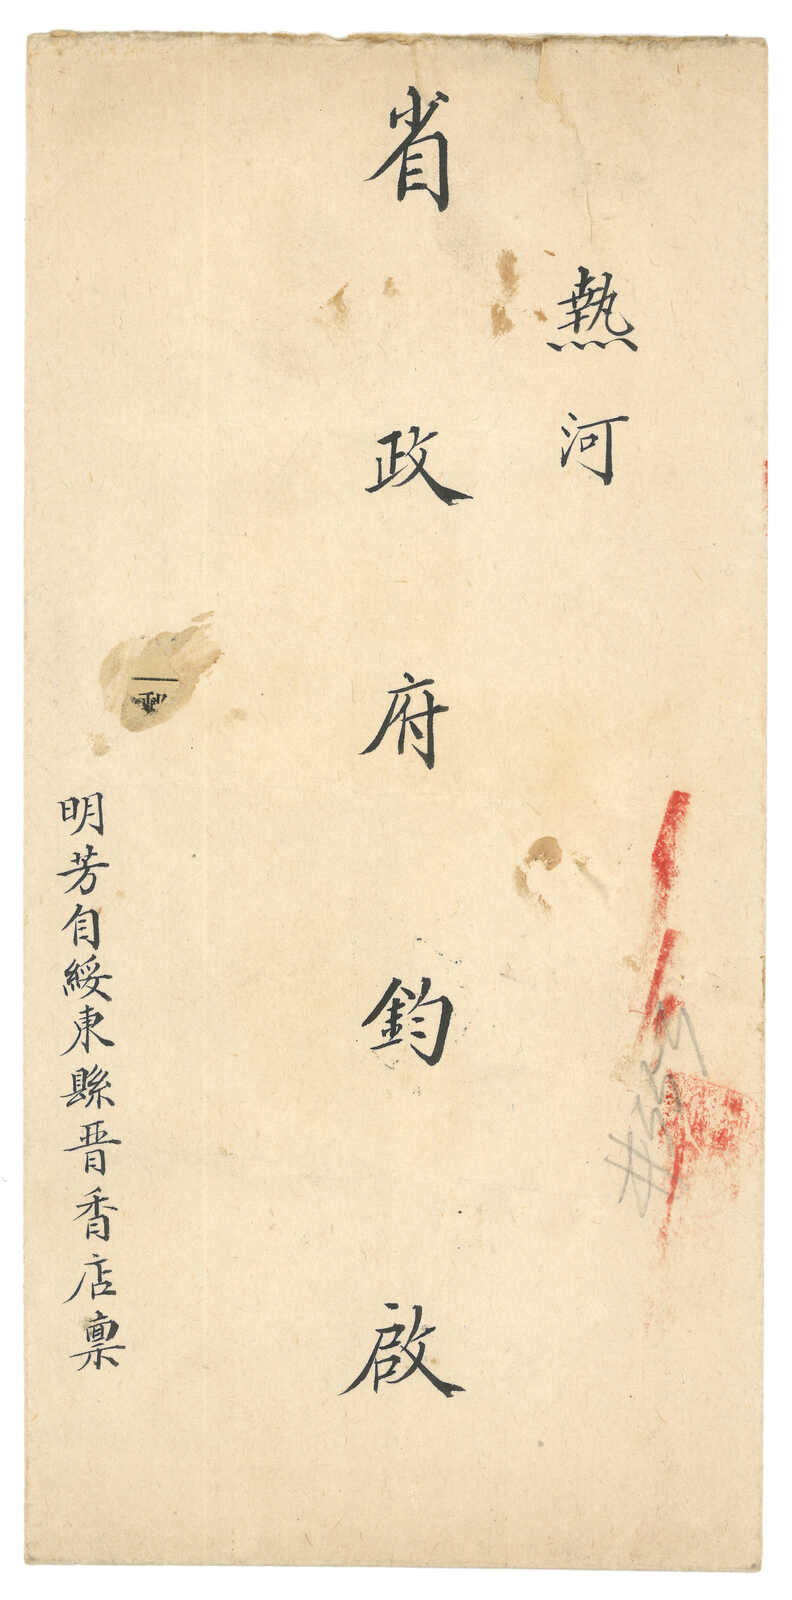 熱河
省政府鈞啟
明芳自綏東縣晋香店禀